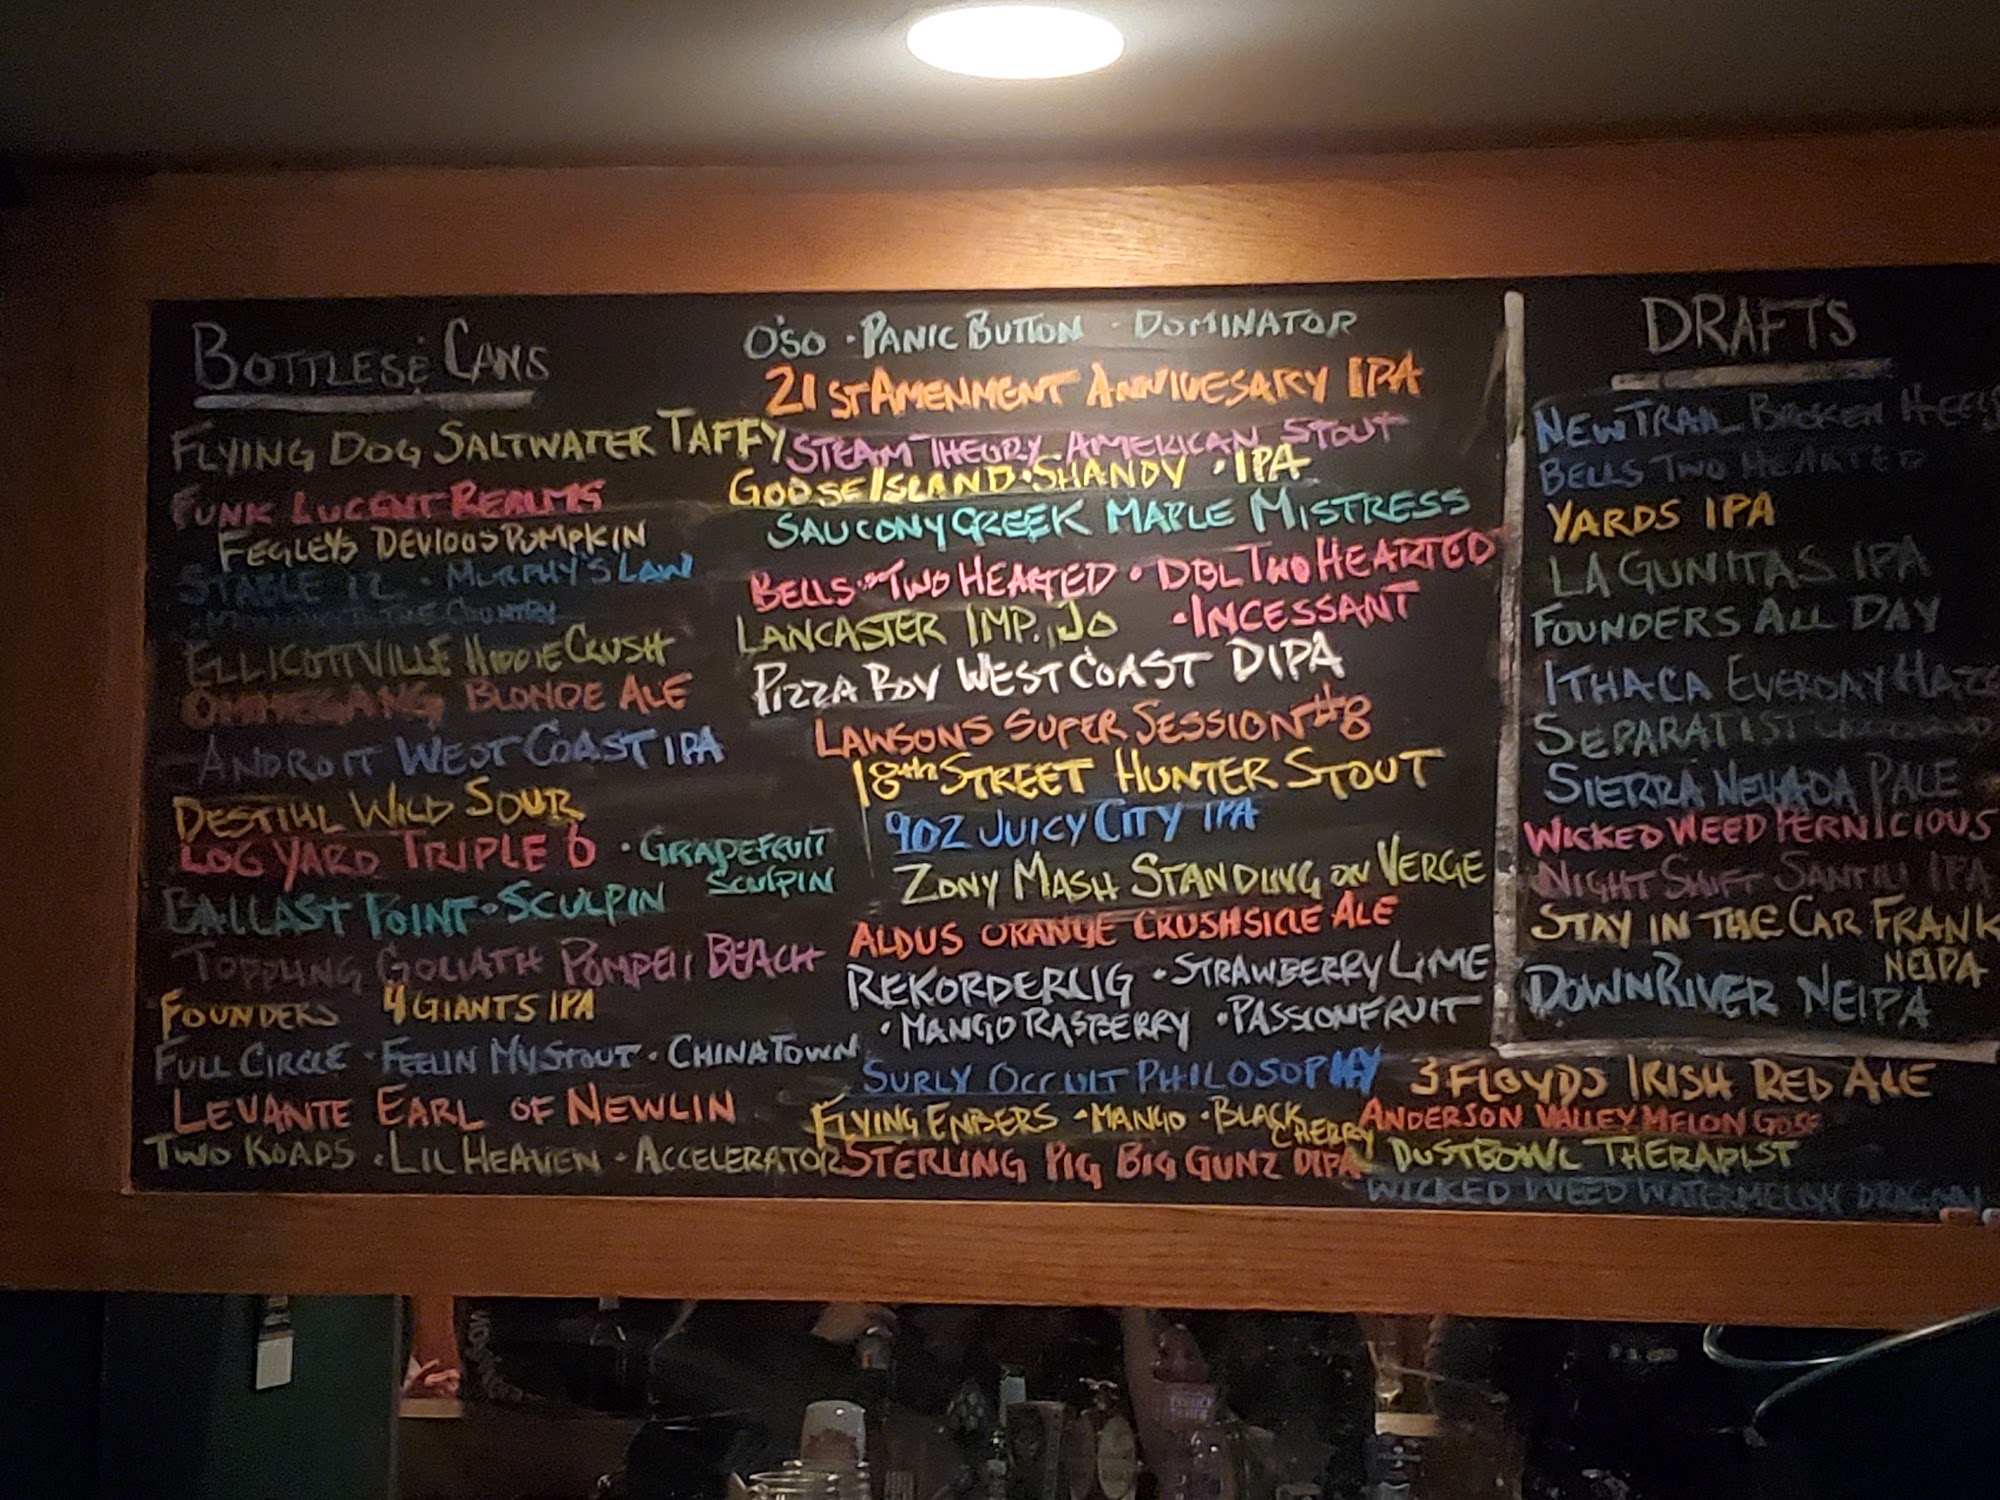 BOTTLES & CANS
FLYING DOG SALTWATER TAFFY
FUNK LUCENT REALMS
FEGLEYS DEVIOUS PUMPKIN
STABLE 12 · MURPHY'S LAW
THE COUNTRY
ELLICOTTVILLE HIDDIE CRUSH
OMMEGANG BLONDE ALE
ANDROIT WEST COAST IPA
DESTIHL WILD SOUR
LOG YARD TRIPLE 6
BALLAST POINT · SCULPIN · GRAPEFRUIT
SCULPIN
TOPPLING GOLIATH POMPEII BEACH
FOUNDERS 4 GIANTS IPA
FULL CIRCLE · FEELIN MY STOUT · CHINATOWN
LEVANTE EARL OF NEWLIN
TWO ROADS · LIL HEAVEN · ACCELERATOR
O'SO · PANIC BUTTON · DOMINATOR
21ST AMENMENT ANNIVESARY IPA
STEAM THEORY AMERICAN STOUT
GOOSE ISLAND · SHANDY · IPA
SAUCONY CREEK MAPLE MISTRESS
BELLS · TWO HEARTED · DBL TWO HEARTED
· INCESSANT
LANCASTER IMP. JO
PIZZA BOY WEST COAST DIPA
LAWSONS SUPER SESSION #8
18th STREET HUNTER STOUT
902 JUICY CITY IPA
ZONY MASH STANDING ON VERGE
ALDUS ORANGE CRUSHSICLE ALE
REKORDERLIG · STRAWBERRY LIME
· MANGO RASBERRY · PASSIONFRUIT
SURLY OCCULT PHILOSOPHY
FLYING EMBERS · MANGO · BLACK
CHERRY
STERLING PIG BIG GUNZ DIPA
3 FLOYDS IRISH RED ALE
ANDERSON VALLEY MELON GOSE
DUSTBOWL THERAPIST
WICKED WEED WATERMELON DRAGON
DRAFTS
NEW TRAIL BROKEN HEELS
BELLS TWO HEARTED
YARDS IPA
LAGUNITAS IPA
FOUNDERS ALL DAY
ITHACA EVERDAY HAZE
SEPARATIST
SIERRA NEVADA PALE
WICKED WEED PERNICIOUS
NIGHT SHIFT SANTILLI IPA
STAY IN THE CAR FRANK
NEIPA
DOWNRIVER NEIPA